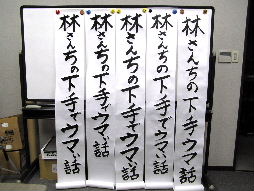 林さんちの下手でウマい話
林さんちの下手でウマい話
林さんちの下手でウマい話
林さんちの下手でウマい話
林さんちの下手でウマい話